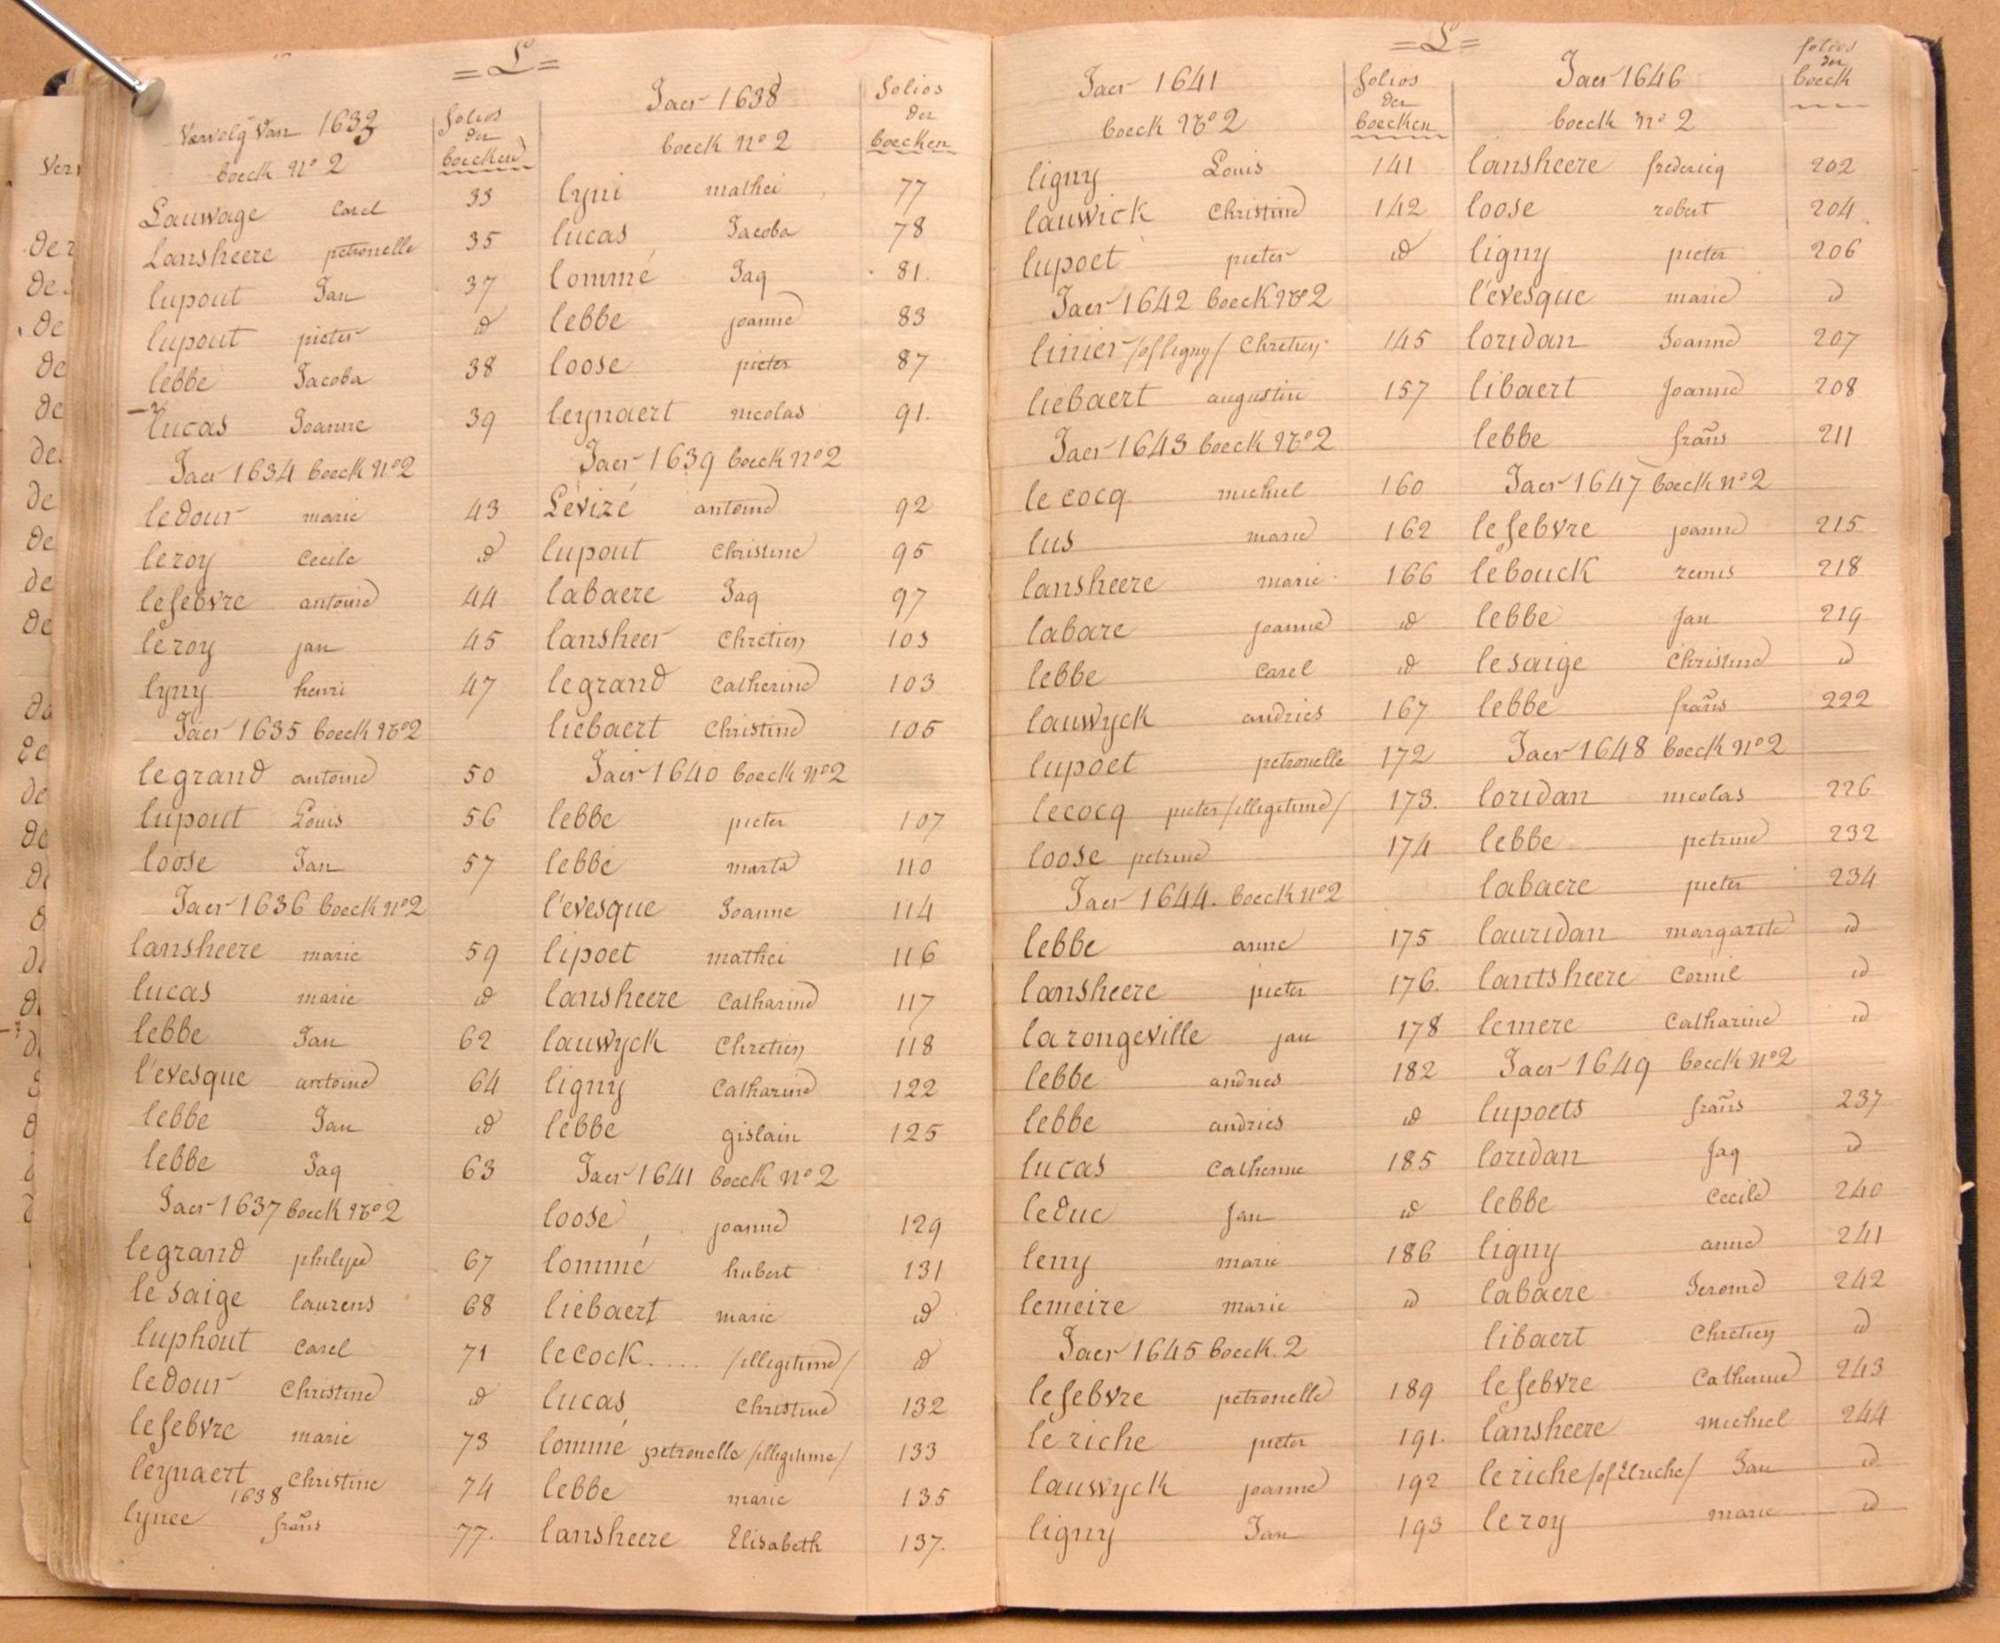 = L =
Vervolg Van 1633
boeck N° 2
folios
der
boecken
Lauwage Carel 33
Lansheere petronelle 35
lupout Jan 37
lupout pieter id
lebbe Jacoba 38
lucas Joanne 39
Jaer 1634 boeck N° 2
ledour marie 43
leroy Cecile id
lefebvre antoine 44
leroy jan 45
lyny henri 47
Jaer 1635 boeck N° 2
legrand antoine 50
lupout Louis 56
loose Jan 57
Jaer 1636 boeck N° 2
lansheere marie 59
lucas marie id
lebbe Jan 62
l'evesque antoine 64
lebbe Jan id
lebbe Jaq 63
Jaer 1637 boeck N° 2
legrand philipe 67
lesaige laurens 68
luphout Carel 71
ledour Christine id
lefebvre marie 73
leynaert Christine 74
1638
lynee frans 77.
Jaer 1638
boeck N° 2
folios
der
boecken
lyni mathei 77
lucas Jacoba 78
lommé Jaq 81.
lebbe joanne 83
loose pieter 87
leynaert nicolas 91.
Jaer 1639 boeck N° 2
Lévizé antoine 92
lupout Christine 95
labaere Jaq 97
lansheer Chretien 103
legrand Catherine 103
liebaert Christine 105
Jaer 1640 boeck N° 2
lebbe pieter 107
lebbe marta 110
l'evesque Joanne 114
lipoet mathei 116
lansheere Catharine 117
lauwyck Chretien 118
ligny Catharine 122
lebbe gislain 125
Jaer 1641 boeck N° 2
loose joanne 129
lommé hubert 131
liebaert marie id
lecock .... /illegitime/ id
lucas Christine 132
lommé petronelle /illegitime/ 133
lebbe marie 135
lansheere Elisabeth 137.
= L =
Jaer 1641
boeck N° 2
folios
der
boecken
ligny Louis 141
lauwick Christine 142
lupoet pieter id
Jaer 1642 boeck N° 2
linier /of ligny/ Chretien 145
liebaert augustin 157
Jaer 1643 boeck N° 2
le cocq michiel 160
lus marie 162
lansheere marie 166
labare joanne id
lebbe Carel id
lauwyck andries 167
lupoet petronelle 172
lecocq pieter /illegitime/ 173.
loose petrine 174
Jaer 1644. boeck N° 2
lebbe anne 175
lansheere pieter 176.
larongeville jan 178
lebbe andries 182
lebbe andries id
lucas Catherine 185
leduc Jan id
leny marie 186
lemeire marie id
Jaer 1645 boeck. 2
lefebvre petronelle 189
leriche pieter 191.
lauwyck joanne 192
ligny Jan 193
Jaer 1646
boeck N° 2
folios
der
boeck
lansheere fredericq 202
loose robert 204
ligny pieter 206
l'evesque marie id
loridan Joanne 207
libaert Joanne 208
lebbe frans 211
Jaer 1647 boeck N° 2
lefebvre joanne 215
lebouck remis 218
lebbe Jan 219
lesaige Christine id
lebbe frans 222
Jaer 1648 boeck N° 2
loridan nicolas 226
lebbe petrine 232
labaere pieter 234
lauridan margarite id
lantsheere Cornil id
lemere Catharine id
Jaer 1649 boeck N° 2
lupoets frans 237
loridan Jaq id
lebbe Cecile 240
ligny anne 241
labaere Jerome 242
libaert Chretien id
lefebvre Catherine 243
lansheere michiel 244
leriche /of Elriche/ Jan id
leroy marie id